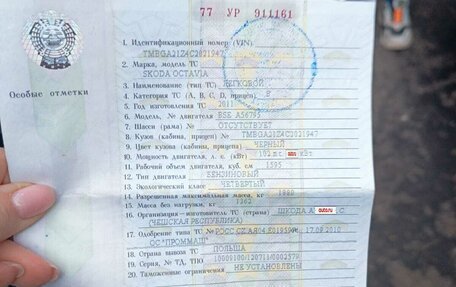 77 УР 911161
Особые отметки
1. Идентификационный номер (VIN)
TMBGA21Z4C2021947
2. Марка, модель ТС
SKODA OCTAVIA
3. Наименование (тип ТС) ЛЕГКОВОЙ
4. Категория ТС (А, В, С, D, прицеп) B
5. Год изготовления ТС 2011
6. Модель, № двигателя BSE A56795
7. Шасси (рама) № ОТСУТСТВУЕТ
8. Кузов (кабина, прицеп) № TMBGA21Z4C2021947
9. Цвет кузова (кабины, прицепа) ЧЕРНЫЙ
10. Мощность двигателя, л. с. (кВт) 102 л.с. кВт
11. Рабочий объем двигателя, куб. см 1595
12. Тип двигателя БЕНЗИНОВЫЙ
13. Экологический класс ЧЕТВЕРТЫЙ
14. Разрешенная максимальная масса, кг
15. Масса без нагрузки, кг
16. Организация—изготовитель ТС (страна) ШКОДА А auto.ru С.
(ЧЕШСКАЯ РЕСПУБЛИКА)
17. Одобрение типа ТС № РОСС CZ.АЯ04 17.09.2010
ОС "ПРОММАШ"
18. Страна вывоза ТС ПОЛЬША
19. Серия, № ТД, ТПО 10009100/120711/0002579
20. Таможенные ограничения НЕ УСТАНОВЛЕНЫ